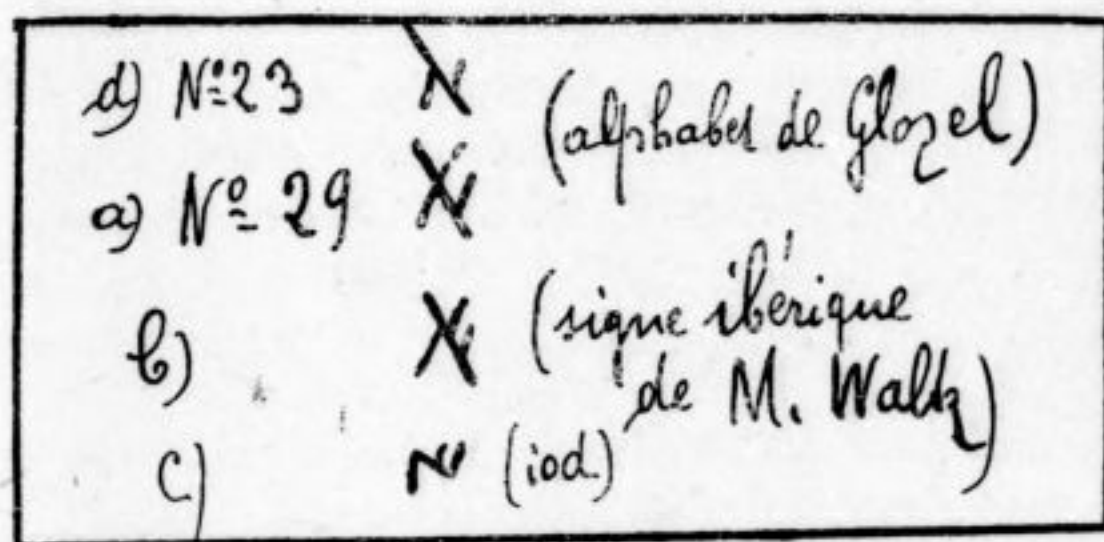 d) Nº 23 (alphabet de Glozel)
a) Nº 29
b) (signe ibérique
de M. Waltz)
c) (iod.)